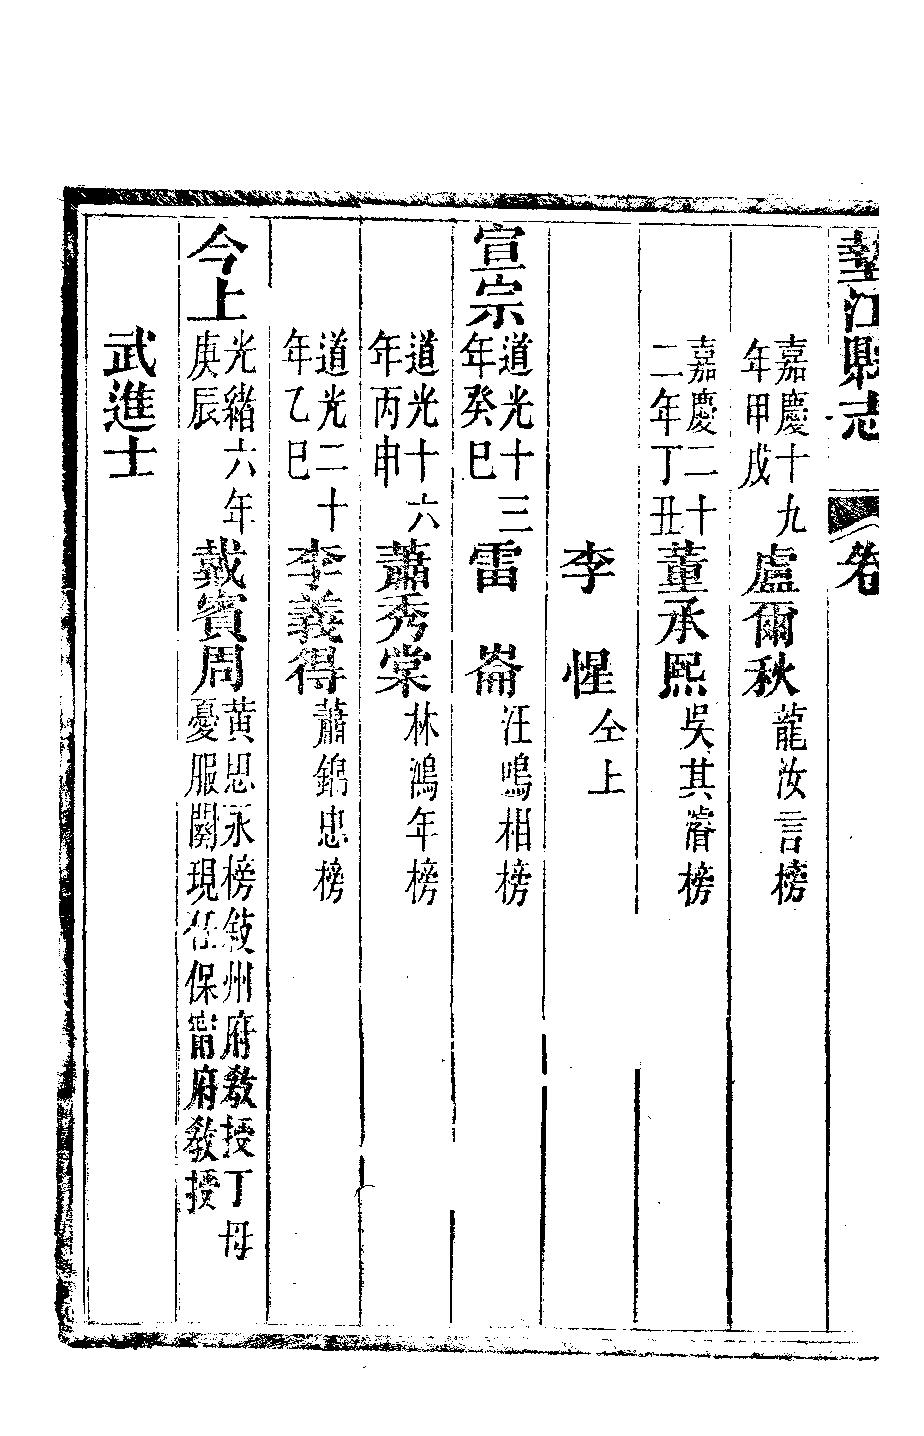 墊江縣志 卷
嘉慶十九年甲戌 盧爾秋 龍汝言榜
嘉慶二十二年丁丑 董承熙 吳其濬榜
李惺 仝上
宣宗 道光十三年癸巳 雷崙 汪鳴相榜
道光十六年丙申 蕭秀棠 林鴻年榜
道光二十年乙巳 李義得 蕭錦忠榜
今上 光緒六年庚辰 戴賓周 黃思永榜敍州府教授丁母憂服闋現任保甯府教授
武進士